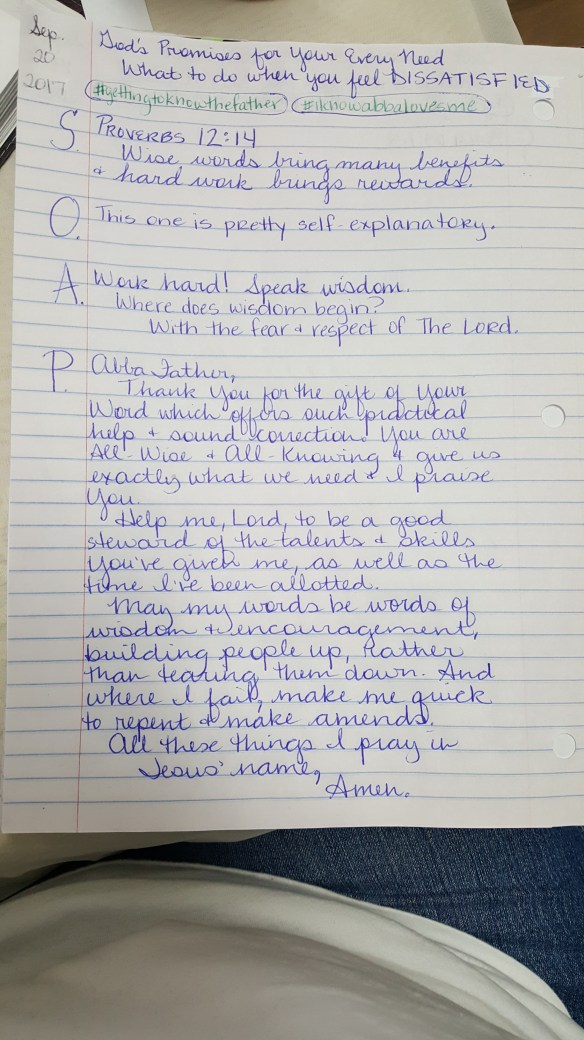 Sep.
20
2017
God's Promises for Your Every Need
What to do when you feel DISSATISFIED
#gettingtoknowthefather #iknowabbalovesme
S. PROVERBS 12:14
Wise words bring many benefits
& hard work brings rewards.
O. This one is pretty self-explanatory.
A. Work hard! Speak wisdom.
Where does wisdom begin?
With the fear & respect of The LORD.
P. Abba Father,
Thank You for the gift of Your
Word which offers such practical
help & sound correction. You are
All-Wise & All-Knowing & give us
exactly what we need & I praise
You.
Help me, Lord, to be a good
steward of the talents & skills
You've given me, as well as the
time I've been allotted.
May my words be words of
wisdom & encouragement,
building people up, rather
than tearing them down. And
where I fail, make me quick
to repent & make amends.
All these things I pray in
Jesus' name,
Amen.